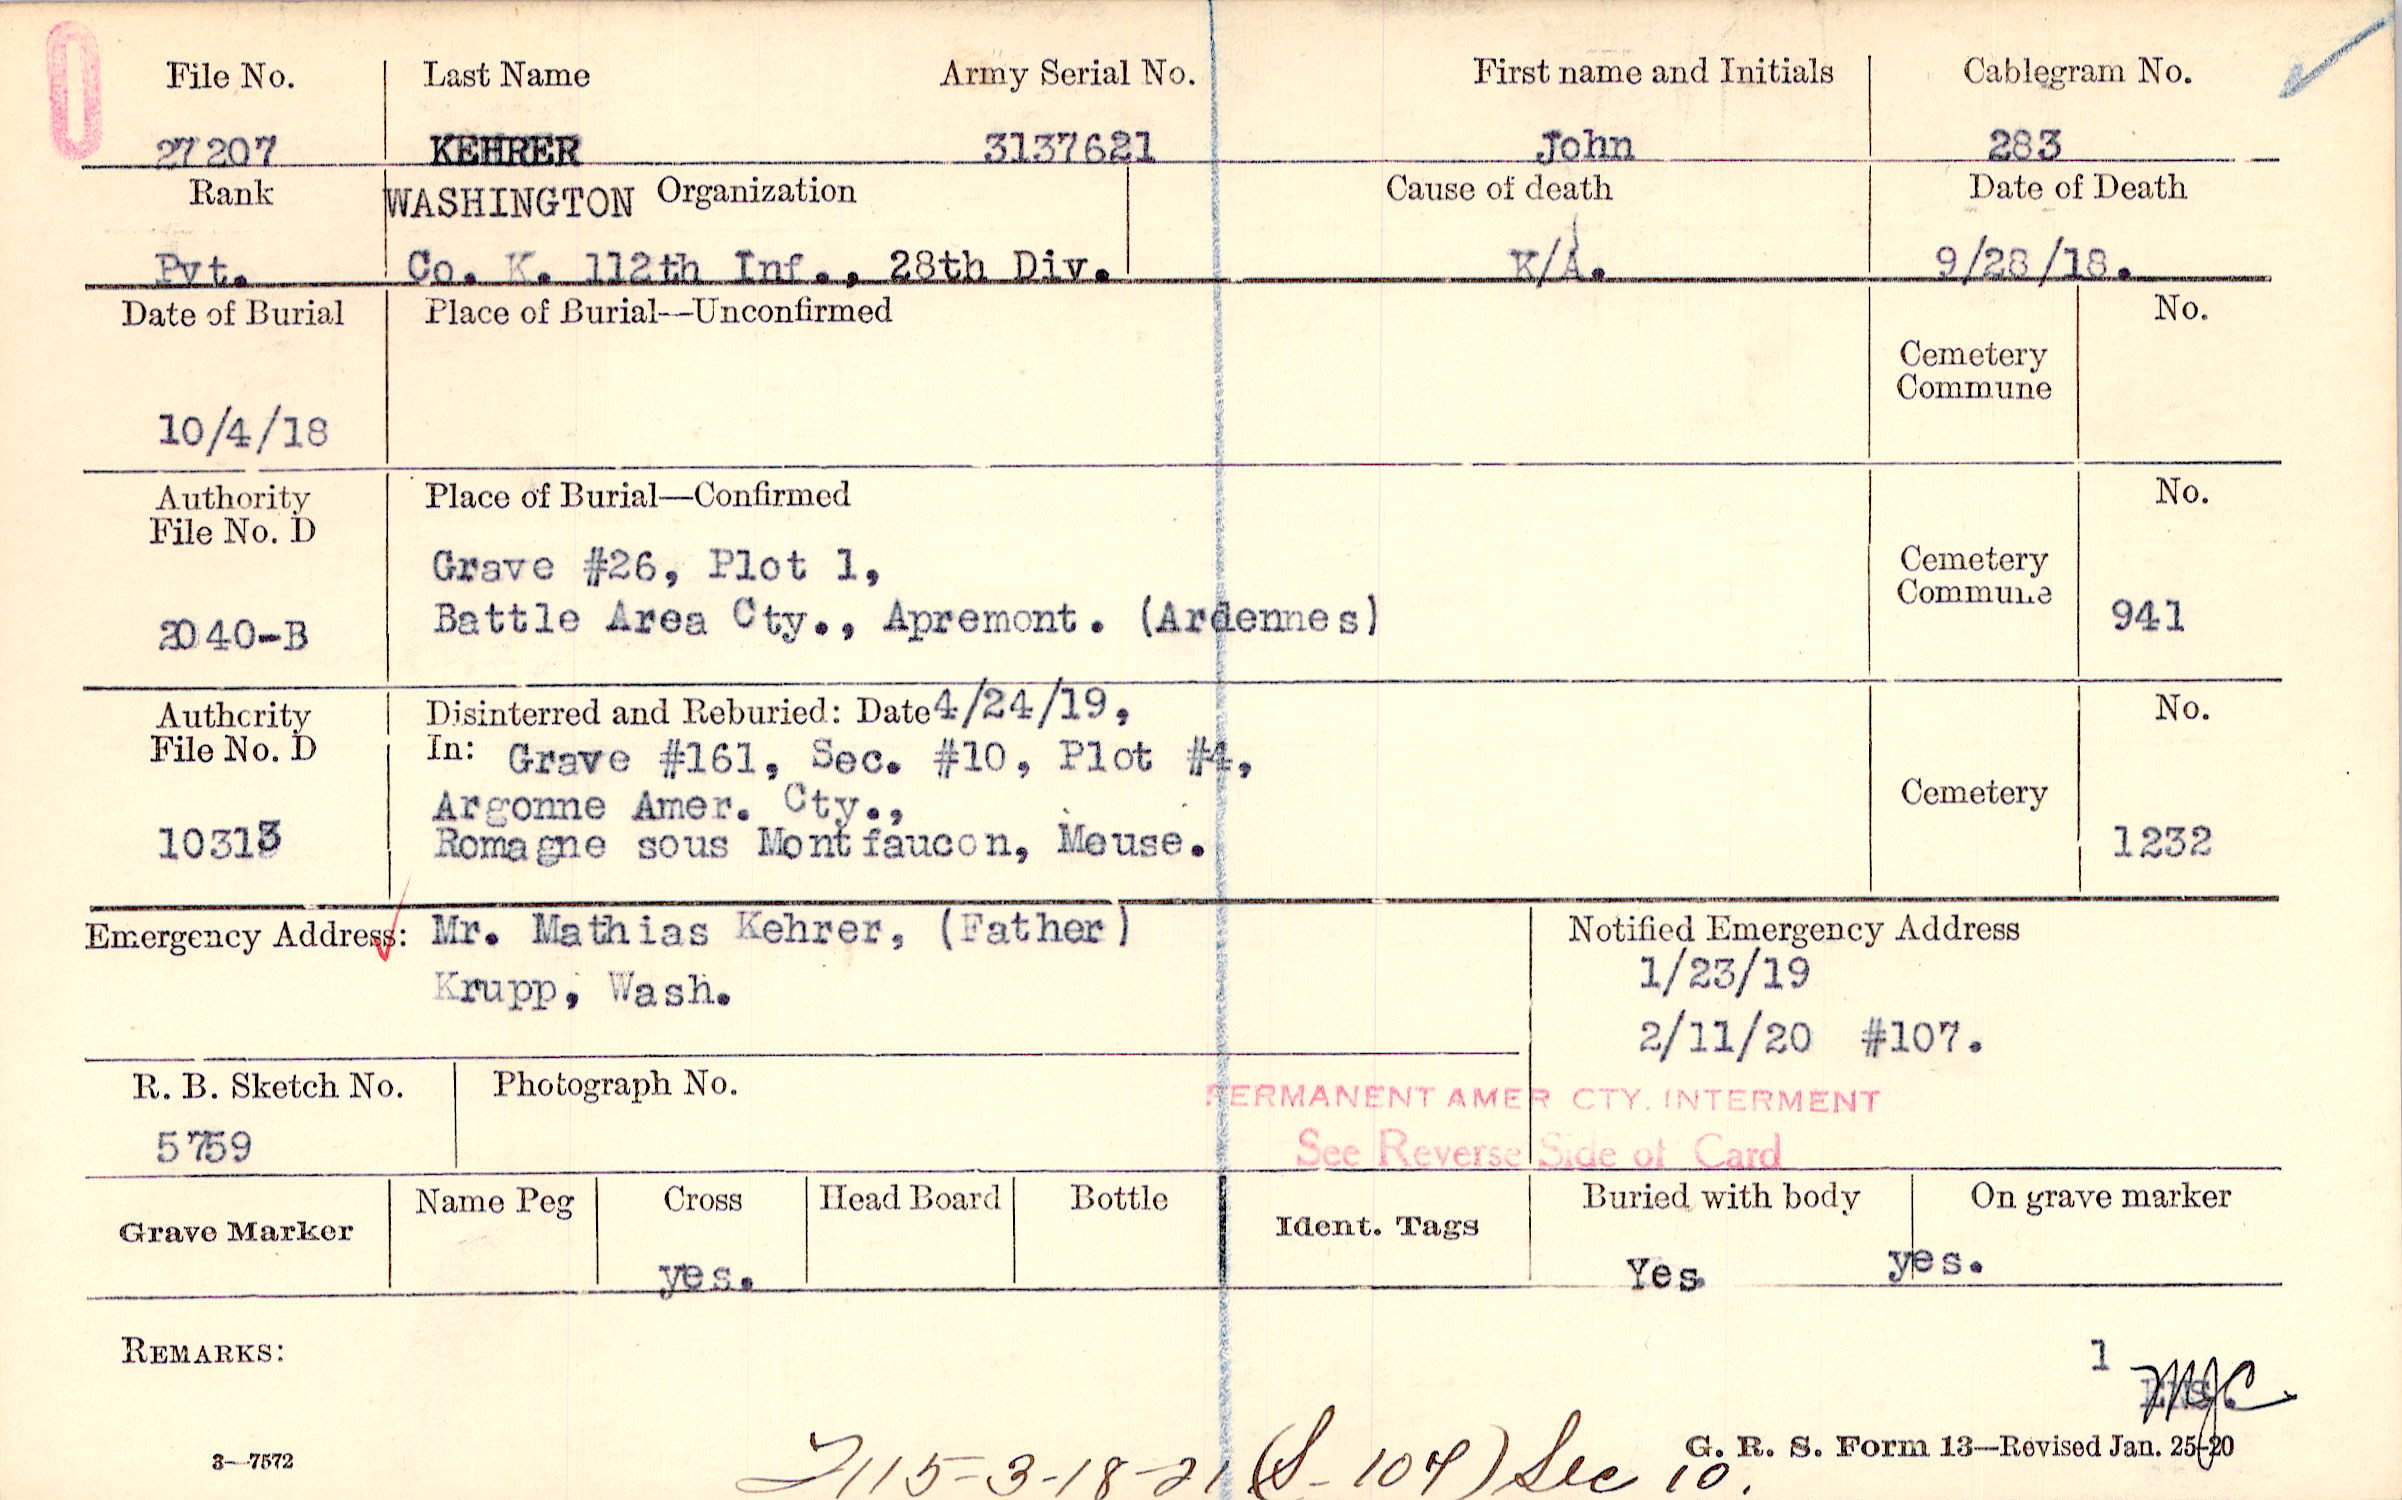 File No. Last Name Army Serial No. First name and Initials Cablegram No.
27207 KEHRER 3137621 John 283
Rank WASHINGTON Organization Cause of death Date of Death
Pvt. Co. K. 112th Inf., 28th Div. K/A. 9/28/18.
Date of Burial Place of Burial—Unconfirmed No.
Cemetery
Commune
10/4/18
Authority Place of Burial—Confirmed No.
File No. D
Grave #26, Plot 1, Cemetery
Commune
2040-B Battle Area Cty., Apremont. (Ardennes) 941
Authority Disinterred and Reburied: Date 4/24/19, No.
File No. D In: Grave #161, Sec. #10, Plot #4,
Argonne Amer. Cty., Cemetery
10313 Romagne sous Montfaucon, Meuse. 1232
Emergency Address: Mr. Mathias Kehrer, (Father) Notified Emergency Address
Krupp, Wash. 1/23/19
2/11/20 #107.
R. B. Sketch No. Photograph No. PERMANENT AMER CTY. INTERMENT
5759 See Reverse Side of Card
Grave Marker Name Peg Cross Head Board Bottle Ident. Tags Buried with body On grave marker
yes. Yes yes.
REMARKS: 1
MJC
3—7572 G. R. S. Form 13—Revised Jan. 25-20
115-3-18-21 (S-104) Sec 10.